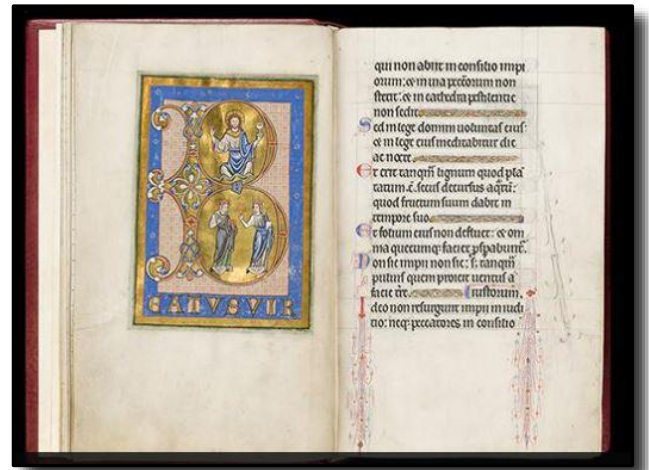 B
EATUSVIR
qui non abiit in consilio impi
orum: et in uia peccorum non
stetit: et in cathedra pestilentie
non sedit.
Sed in lege domini uoluntas eius:
et in lege eius meditabitur die
ac nocte.
Et erit tanqm lignum quod pla
tatum e secus decursus aqru:
quod fructum suum dabit in
tempore suo.
Et folium eius non defluet: et om
nia quecumq faciet pspabunt.
Non sic impii non sic: s; tanqm
puluis quem proicit uentus a
facie tre. iustorum.
Ideo non resurgunt impii in iudi
tio: neq peccatores in consilio